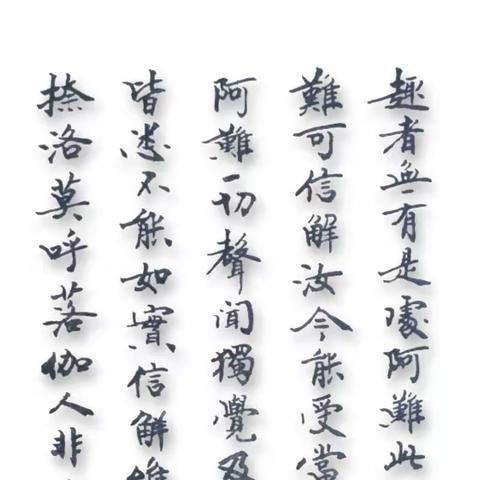 趣者無有是處阿難此
難可信解汝今能受當
阿難一切聲聞獨覺及
皆悉不能如實信解
捺洛莫呼落伽人非